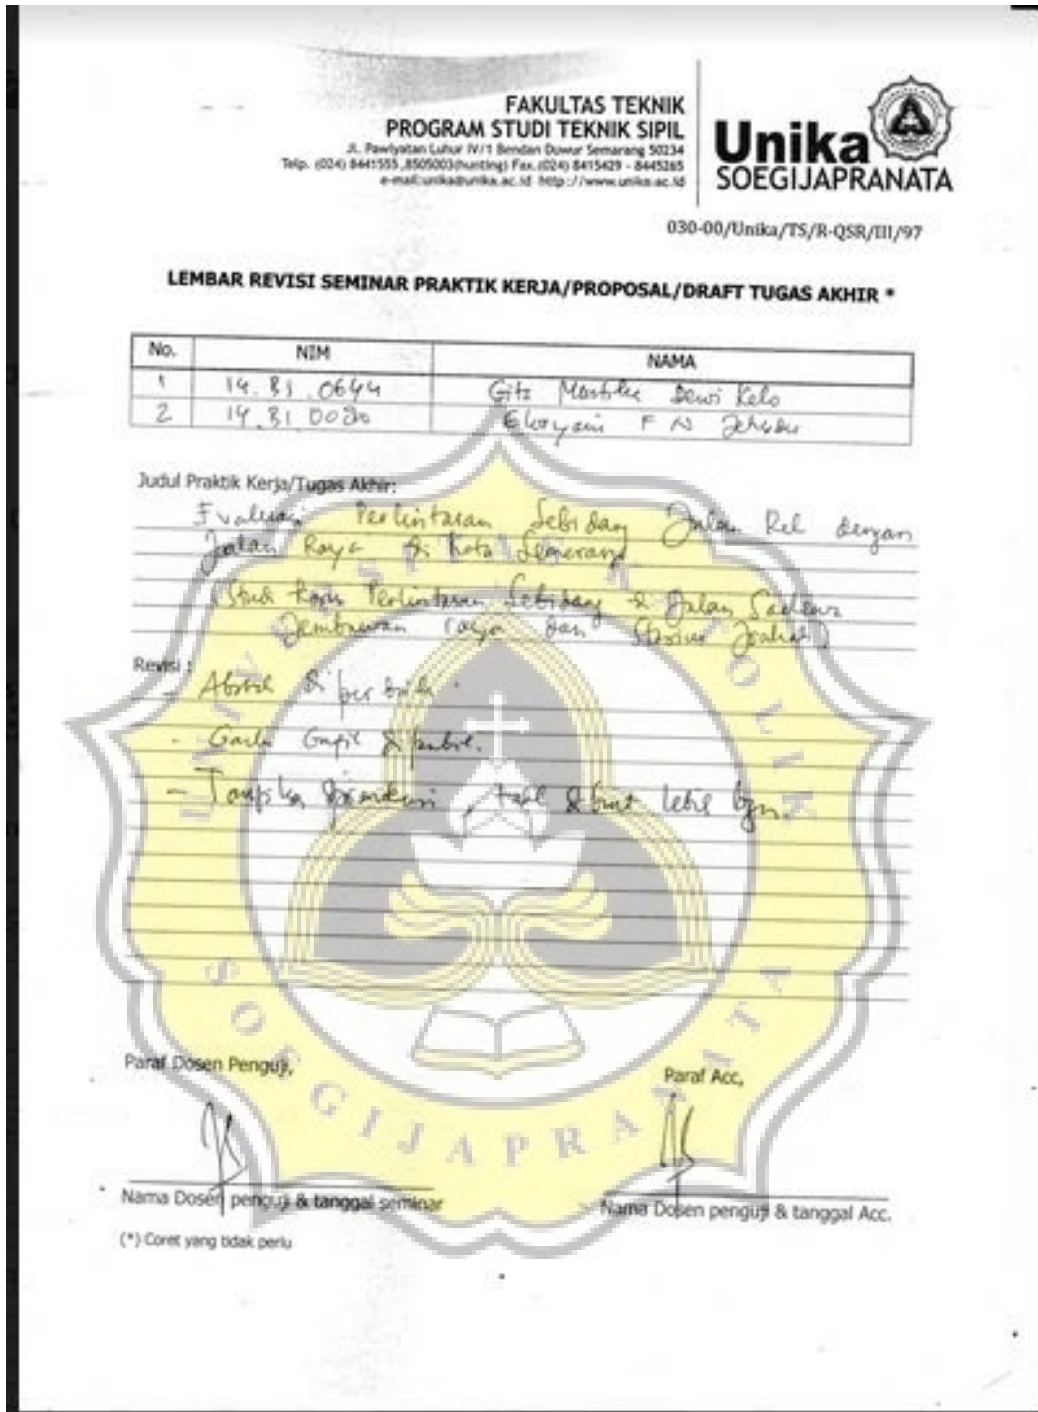 FAKULTAS TEKNIK
PROGRAM STUDI TEKNIK SIPIL
JL. Pawiyatan Luhur IV/1 Bendan Duwur Semarang 50234
Telp. (024) 8441555 ,8505003(hunting) Fax.(024) 8415429 - 8445265
e-mail:unika@unika.ac.id http://www.unika.ac.id
Unika
SOEGIJAPRANATA
030-00/Unika/TS/R-QSR/III/97
LEMBAR REVISI SEMINAR PRAKTIK KERJA/PROPOSAL/DRAFT TUGAS AKHIR *
No. NIM NAMA
1 14.B1.0644 Dewi Kelo
2 14.B1.0020 F N
Judul Praktik Kerja/Tugas Akhir:
Evaluasi Perlintasan Sebidang Jalan Rel dengan
Jalan Raya di Kota Semarang
(Studi Kasus Perlintasan Sebidang di Jalan
dan Stasiun
Revisi :
- diperbaiki.
- Garis Grafik
- , tabel dibuat lebih
Paraf Dosen Penguji,
Paraf Acc,
Nama Dosen penguji & tanggal seminar
Nama Dosen penguji & tanggal Acc.
(*) Coret yang tidak perlu
UNIVERSITAS KATOLIK
SOEGIJAPRANATA